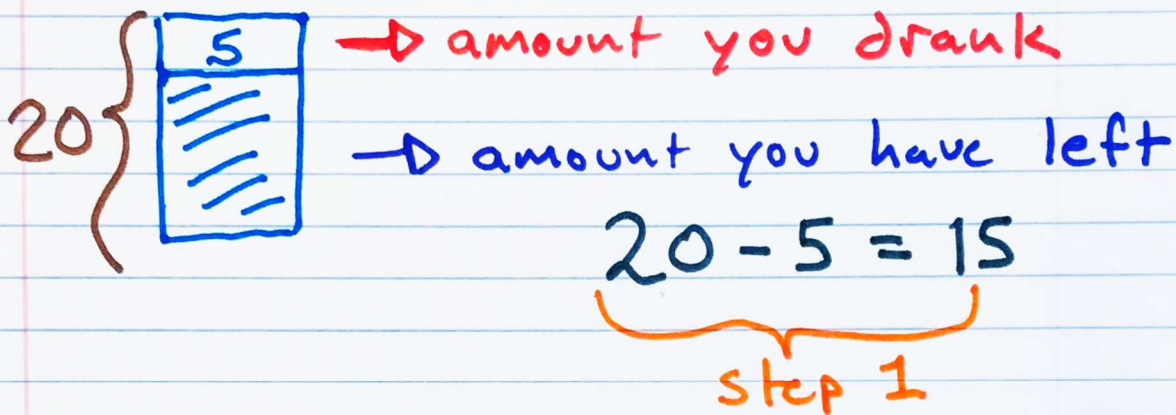 5 → amount you drank
20
→ amount you have left
20 - 5 = 15
step 1